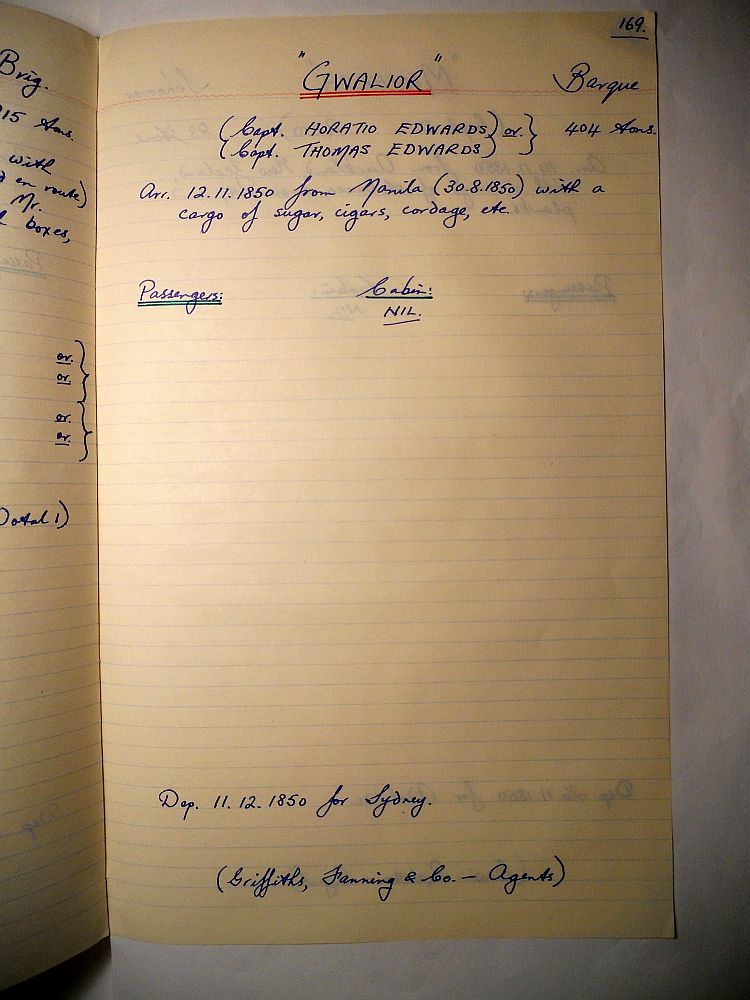 169.
"GWALIOR" Barque
(Capt. HORATIO EDWARDS) or. } 404 tons.
(Capt. THOMAS EDWARDS)
Arr. 12.11.1850 from Manila (30.8.1850) with a
cargo of sugar, cigars, cordage, etc.
Passengers: Cabin:
NIL.
Dep. 11.12.1850 for Sydney.
(Griffiths, Fanning & Co. — Agents)
Brig.
15 tons.
with
en route)
Mr.
boxes,
or.
or.
or.
or.
Total 1)